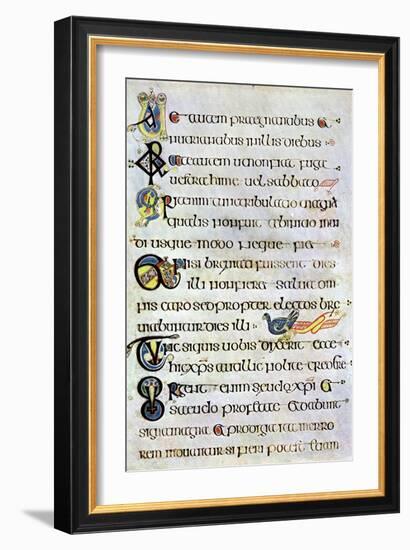 Uae autem praegnantibus et
nutrientibus in illis diebus
Orate autem ut non fiat fuga
uestra hieme uel sabbato
Erit enim tunc tribulatio magna
qualis non fuit ab initio mun
di usque modo neque fiet
Et nisi breuiati fuissent dies
illi non fieret salua om
nis caro sed propter electos bre
uiabuntur dies illi
Tunc si quis uobis dixerit ecce
hic xps aut illic nolite credere
Surgent enim seudoxpi et
seudo profetae et dabunt
signa magna et prodigia ita ut in erro
rem moueantur si fieri potest etiam